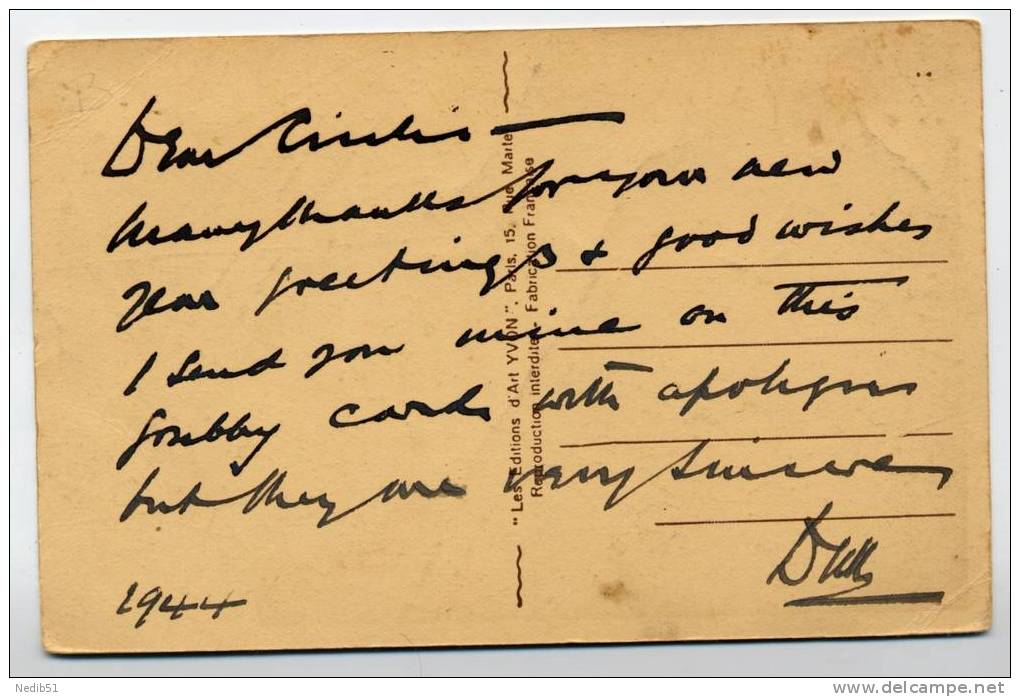 Dear
Many thanks for your new
year greetings & good wishes
I send you mine on this
grubby card with apologies
but they are very sincere
1944
"Les Editions d'Art YVON", Paris, 15, Rue Martel
Reproduction interdite - Fabrication Française
Nedib51
www.delcampe.net